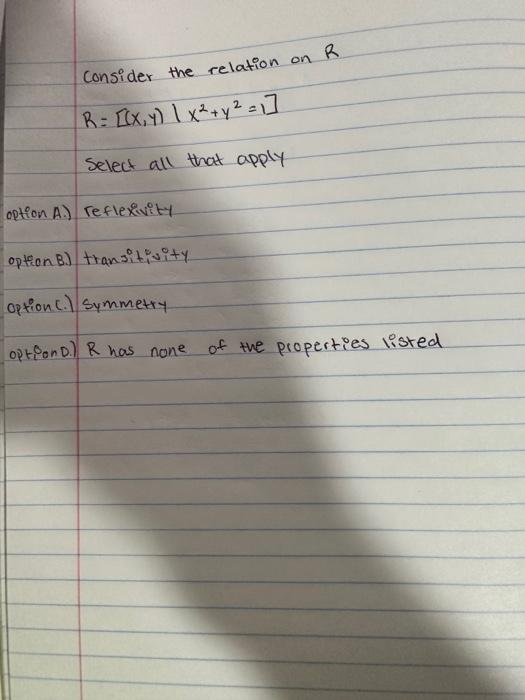 Consider the relation on R
R = [(x,y) | x² + y² = 1]
Select all that apply
option A.) reflexivity
option B.) transitivity
option C.) symmetry
option D.) R has none of the properties listed